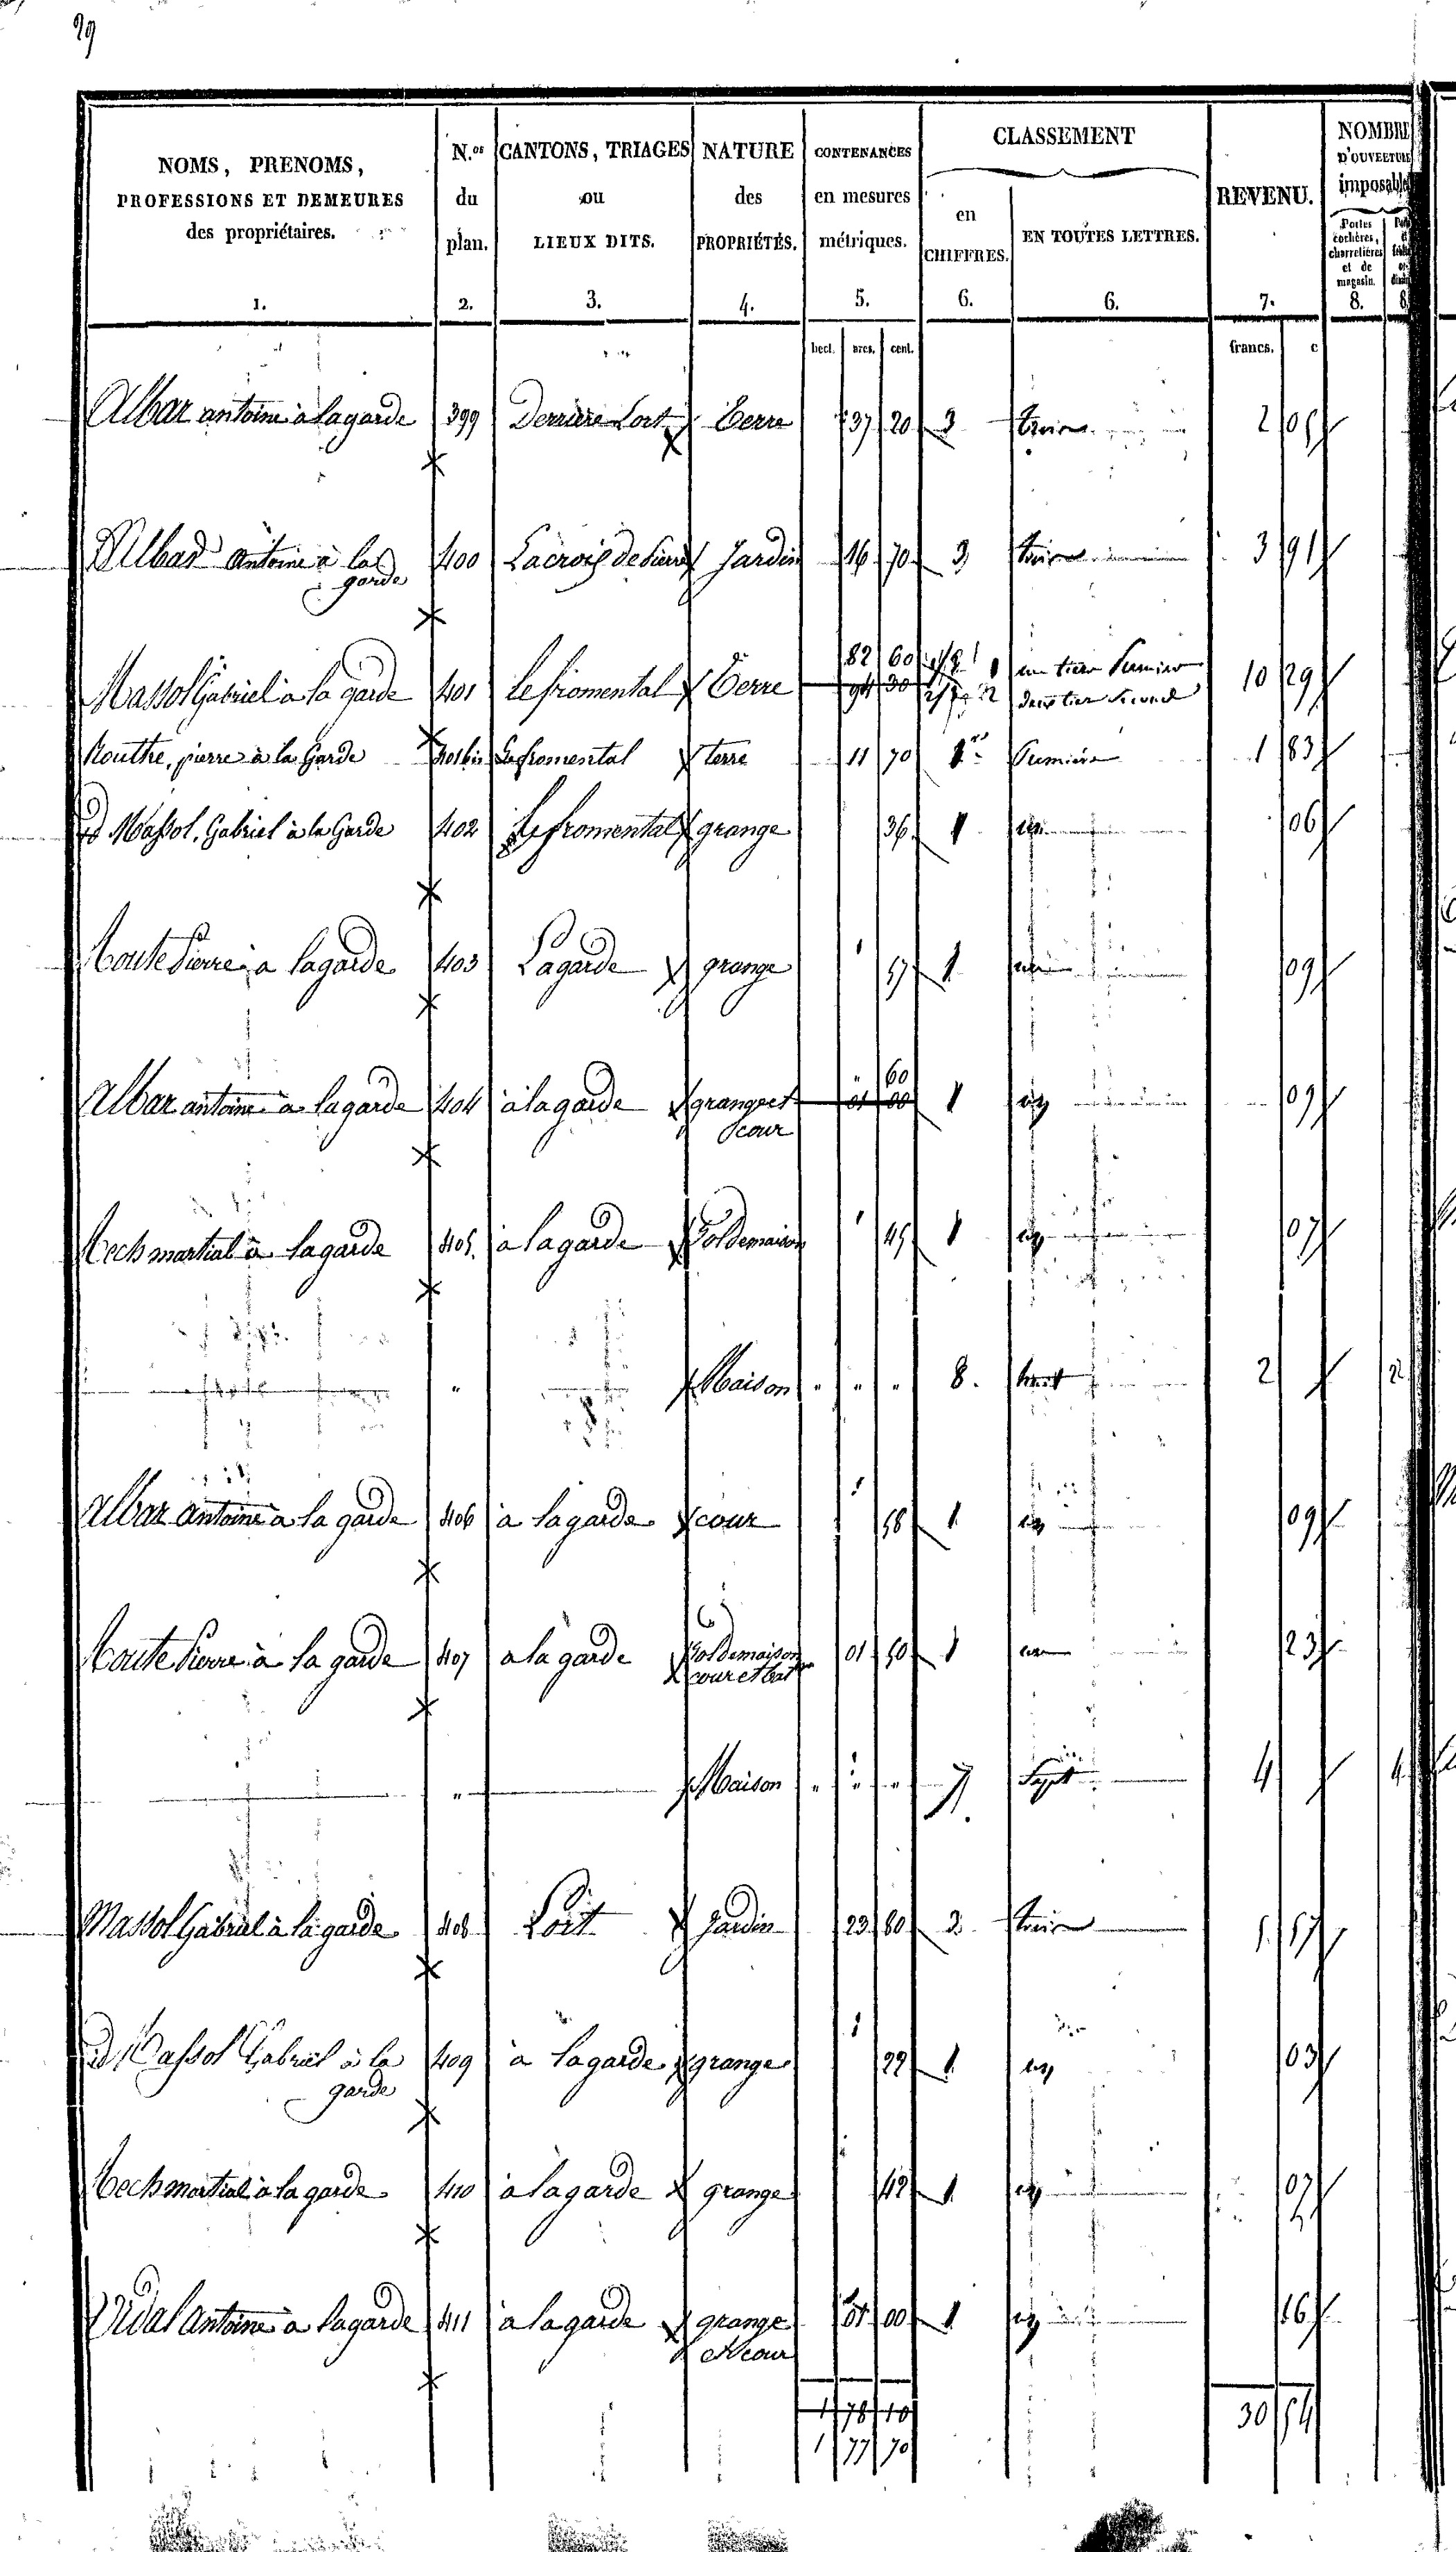 29
NOMS, PRENOMS,
PROFESSIONS ET DEMEURES
des propriétaires.
1.
N.os
du
plan.
2.
CANTONS, TRIAGES
ou
LIEUX DITS.
3.
NATURE
des
PROPRIÉTÉS.
4.
CONTENANCES
en mesures
métriques.
5.
CLASSEMENT
en
CHIFFRES.
6.
EN TOUTES LETTRES.
6.
REVENU.
7.
NOMBRE
D'OUVERTURE
imposable
Portes
cochères,
charretières
et de
magasin.
8.
hect. ares. cent. francs. c
Albar antoine à lagarde 399 Derriere Lort Terre 37 20 3 trois 2 05
Albar Antoine à la 400 Lacroix de Jardin 16 70 3 trois 3 91
garde
82 60 1 un tiers Premier
Massol Gabriel à la garde 401 Le fromental Terre 94 30 2 deux tiers Second 10 29
Pierre à la Garde 401 bis Le fromental terre 11 70 1re Premiere 1 83
d Massol, Gabriel à la Garde 402 Le fromental grange 36 1 06
Pierre à lagarde 403 Lagarde grange 57 1 09
60
Albar antoine à lagarde 404 à lagarde grange et 01 00 1 09
cour
martial à lagarde 405 à lagarde Sol de maison 45 1 07
" Maison " " " 8. huit 2 2
Albar Antoine à la garde 406 à lagarde cour 58 1 09
Pierre à la garde 407 à la garde Sol de maison 01 50 1 23
cour et bat
" Maison " " " 7. Sept 4 4
Massol Gabriel à la garde 408 Lort Jardin 23 80 3 trois
d Massol Gabriel à la 409 à lagarde grange 22 1 03
garde
martial à la garde 410 à lagarde grange 42 1 07
Vidal Antoine à lagarde 411 à la garde grange 01 00 1 16
et cour
1 78 10
30 54
1 77 70